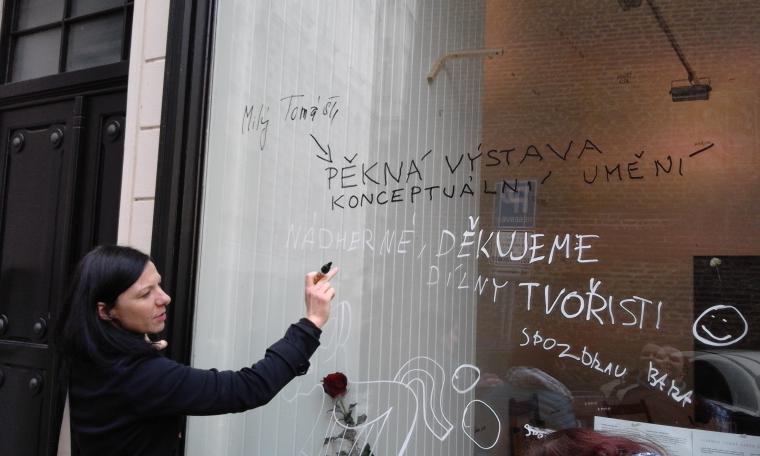 Milý Tomáši,
PĚKNÁ VÝSTAVA
KONCEPTUÁLNÍ UMĚNÍ
NÁDHERNÉ, DĚKUJEME
DÍLNY TVOŘISTI
SPOZDRAV BARA